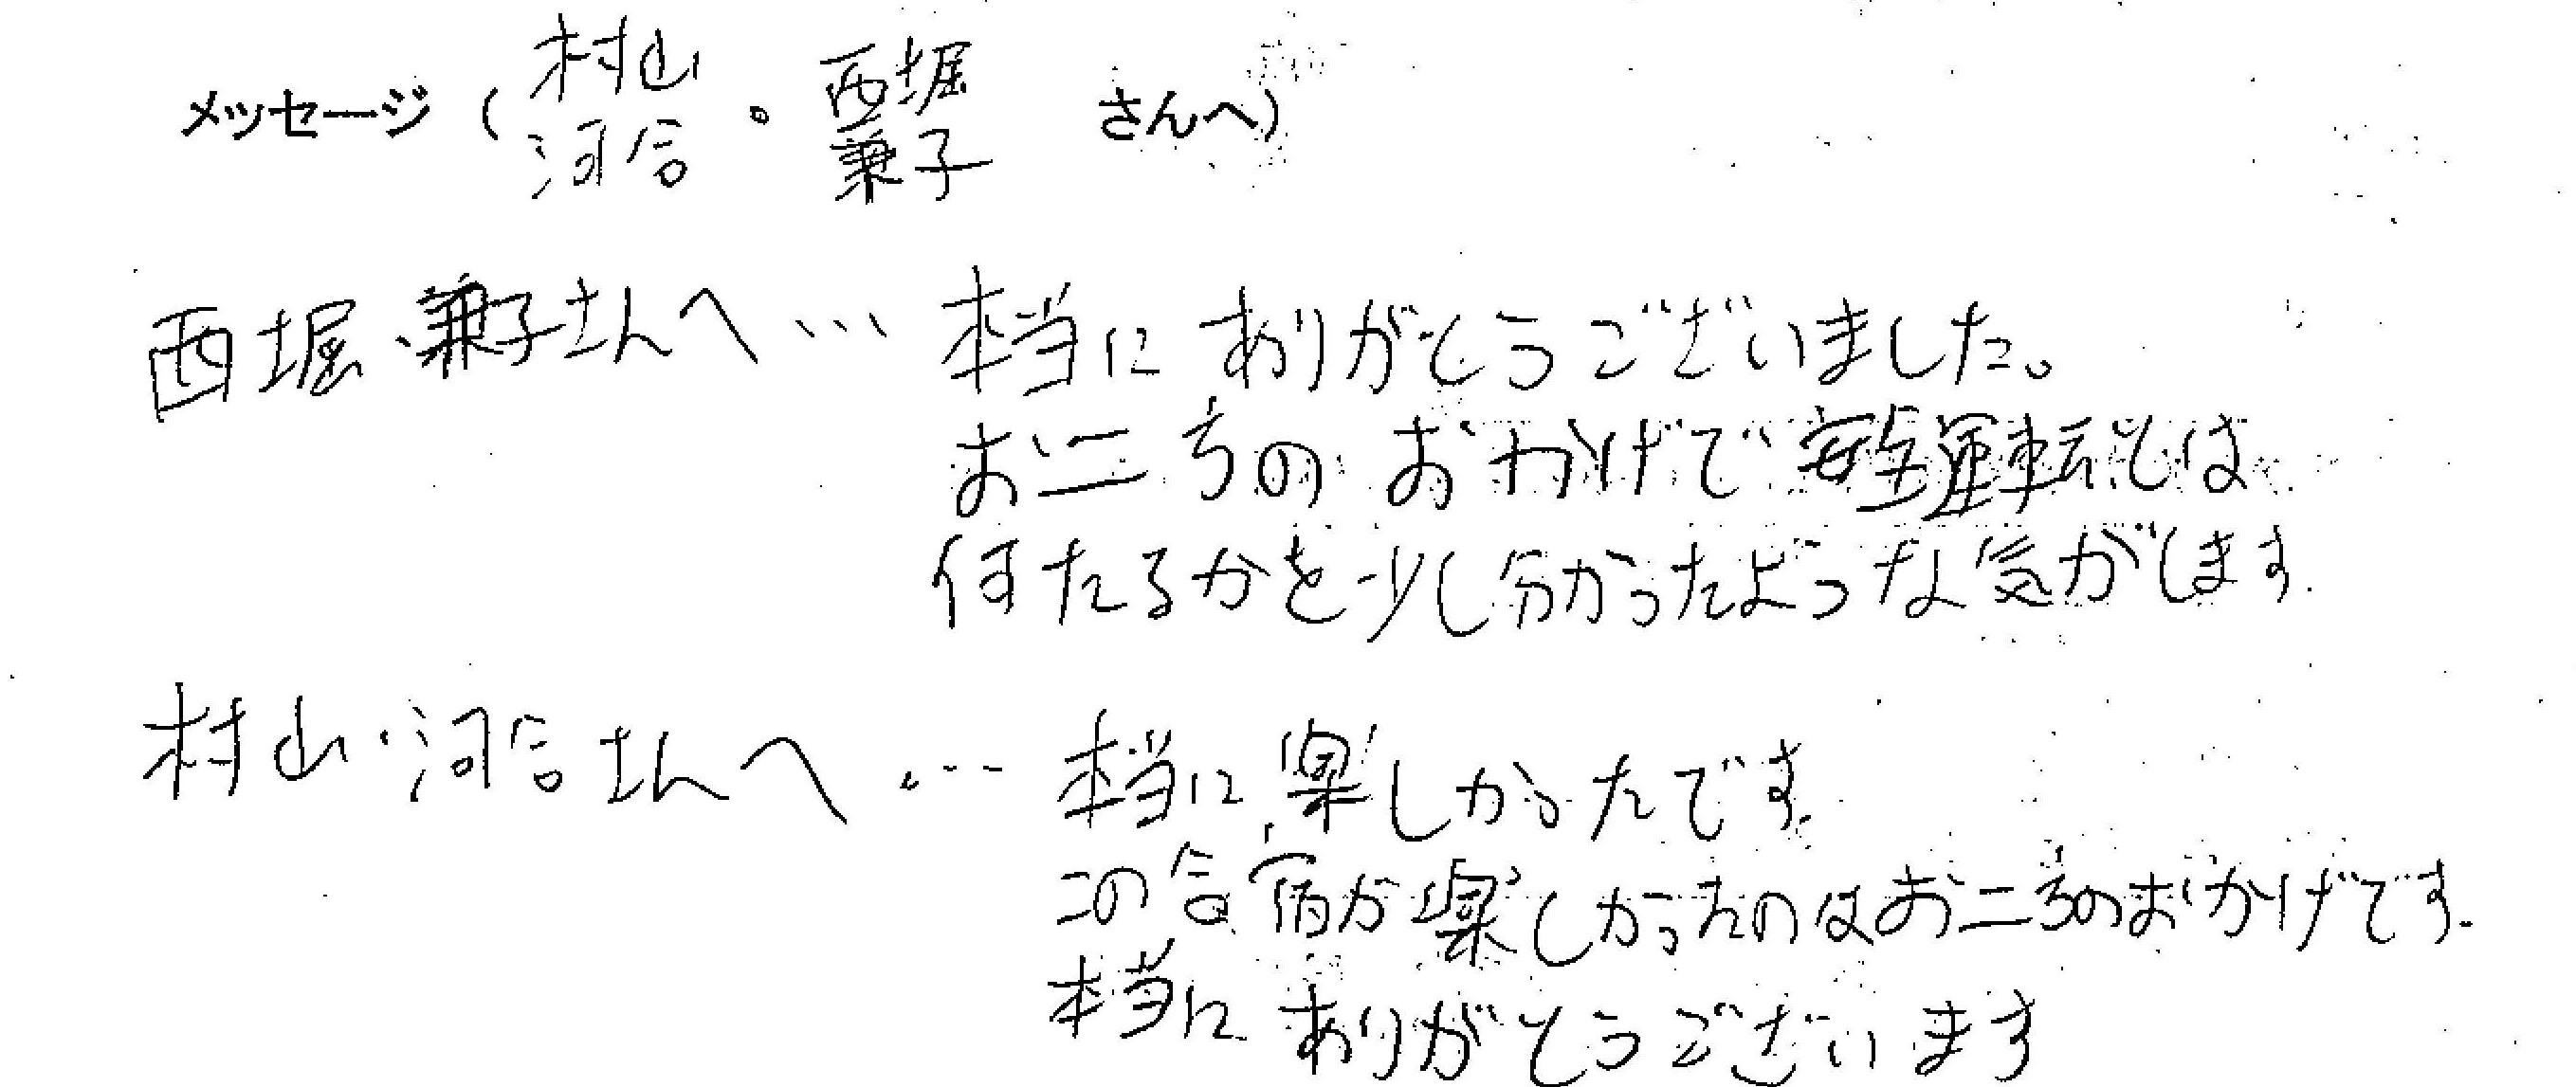 メッセージ（村山 河合・西堀 兼子 さんへ）
西堀・兼子さんへ… 本当にありがとうございました。
お二方のおかげで安全運転とは
何たるかを少し分かったような気がします.
村山・河合さんへ… 本当に楽しかったです.
この合宿が楽しかったのはお二方のおかげです.
本当にありがとうございます